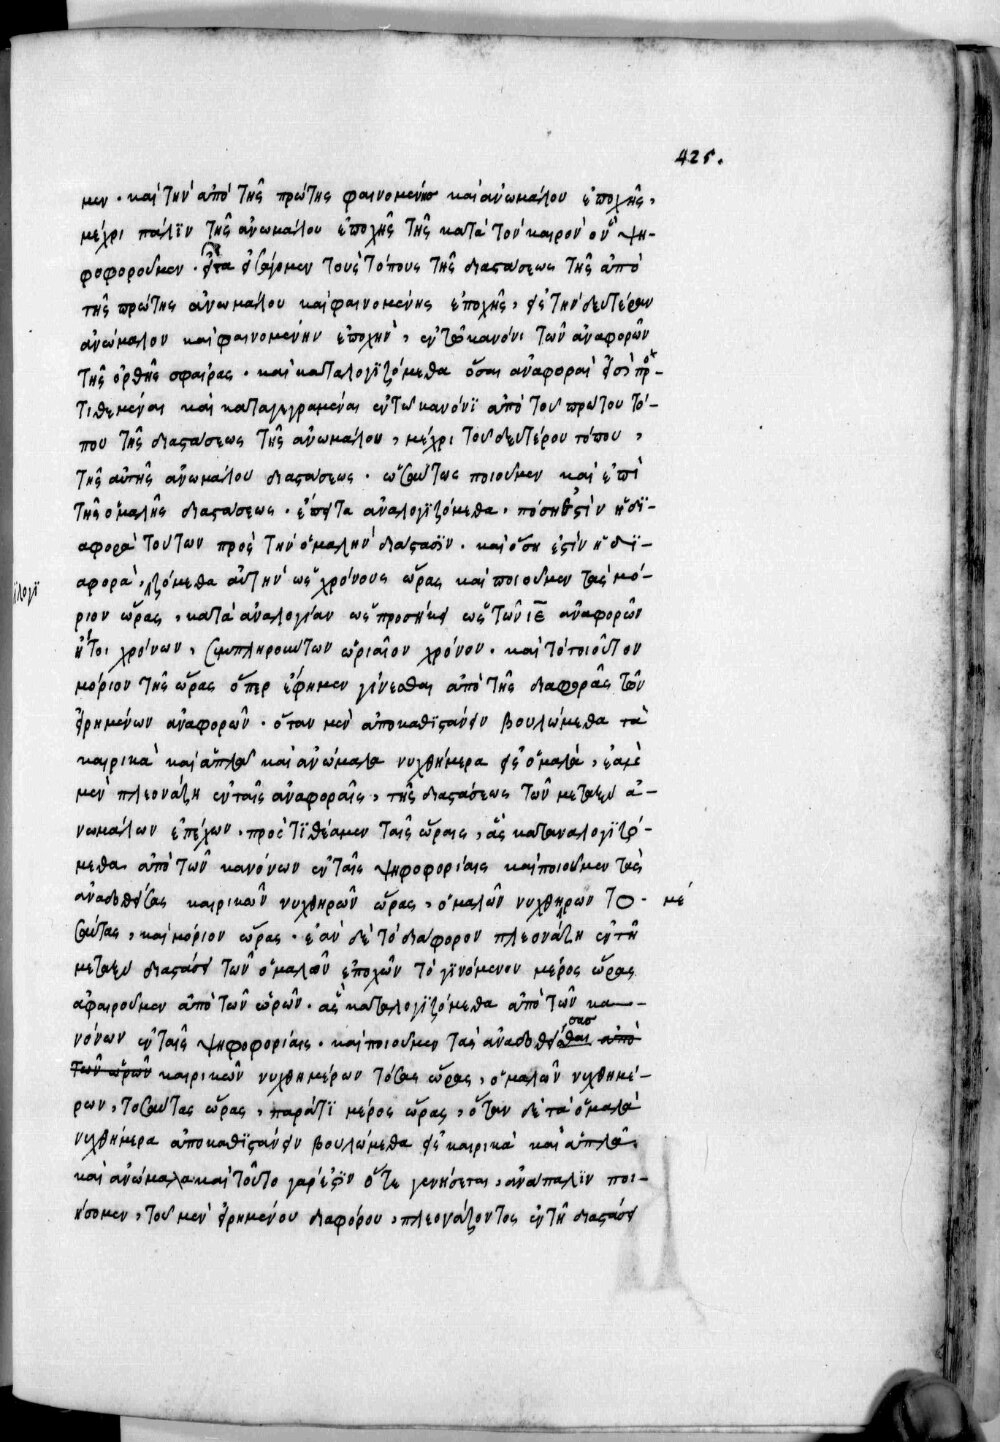 425.
μεν · καὶ τὴν ἀπὸ τῆς πρώτης φαινομένης καὶ ἀνωμάλου ἐποχῆς,
μέχρι πάλϊν τῆς ἀνωμάλου ἐποχῆς τῆς κατὰ τὸν καιρὸν ὃν ψη-
φοφοροῦμεν · εἶτα τοὺς τόπους τῆς διαστάσεως τῆς ἀπὸ
τῆς πρώτης ἀνωμάλου καὶ φαινομένης ἐποχῆς, εἰς τὴν δευτέραν
ἀνώμαλον καὶ φαινομένην ἐποχὴν, ἐν τῶ κανόνι τῶν ἀναφορῶν
τῆς ὀρθῆς σφαίρας · καὶ καταλογϊζόμεθα ὅσαι ἀναφοραὶ εἰσὶ προ-
τιθεμέναι καὶ καταγεγραμέναι ἐν τῶ κανόνϊ ἀπὸ τοῦ πρώτου τό-
που τῆς διαστάσεως τῆς ἀνωμάλου, μέχρι τοῦ δευτέρου τόπου,
τῆς αὐτῆς ἀνωμάλου διαστάσεως · ὡσαύτως ποιοῦμεν καὶ ἐπὶ
τῆς ὁμαλῆς διαστάσεως · ἔπειτα ἀναλογϊζόμεθα · πόση ἐστὶν ἡ δϊ-
αφορὰ τούτων πρὸς τὴν ὁμαλὴν διάστασϊν · καὶ ὅση ἐστὶν ἡ δϊ-
ϊλογϊ
αφορὰ, ζόμεθα αὐτὴν ὡς χρόνους ὥρας καὶ ποιοῦμεν τας μό-
ριον ὥρας, κατὰ ἀναλογίαν ὡς προσήκει ὡς τῶν ιε ἀναφορῶν
ἤτοι χρόνων, συμπληρούντων ὡριαῖον χρόνον · καὶ τὸ ποιοῦτον
μόριον τῆς ὥρας ὅπερ ἔφημεν γίνεσθαι ἀπὸ τῆς διαφορᾶς τῶν
εἰρημένων ἀναφορῶν · ὅταν μὲν ἀποκαθϊστάνειν βουλώμεθα τὰ
καιρικὰ καὶ ἁπλᾶ καὶ ἀνώμαλα νυχθήμερα εἰς ὁμαλὰ,
μὲν πλεονάζη ἐν ταῖς ἀναφοραῖς, τῆς διαστάσεως τῶν μεταξὺ ἀ-
νωμάλων ἐπέχων · προστϊθέαμεν ταῖς ὥραις, ἃς καταναλογϊζό-
μεθα ἀπὸ τῶν κανόνων ἐν ταῖς ψηφοφορίαις καὶ ποιοῦμεν τὰς
ἀναδοθείσας καιρικῶν νυχθηρῶν ὥρας, ὁμαλῶν νυχθηρων το- με
σαύτας, καὶ μόριον ὥρας · ἐὰν δὲ τὸ διάφορον πλεονάζη ἐν τῆ
μεταξὺ διαστάσει τῶν ὁμαλῶν ἐποχῶν τὸ γϊνόμενον μέρος ὥρας
ἀφαιροῦμεν ἀπὸ τῶν ὡρῶν · ἃς καταλογϊζόμεθα ἀπὸ τῶν κα-
νόνων ἐν ταῖς ψηφοφορίαις · καὶ ποιοῦμεν τὰς ἀναδοθεί σασ θαι ἀπὸ
τῶν ὡρῶν καιρικῶν νυχθημέρων τόσας ὥρας, ὁμαλῶν νυχθημέ-
ρων, τοσαύτας ὥρας, παρά τϊ μέρος ὥρας, ὅταν δὲ τὰ ὁμαλὰ
νυχθήμερα ἀποκαθϊστάνειν βουλώμεθα εἰς καιρικὰ καὶ ἁπλᾶ,
καὶ ἀνώμαλα καὶ τοῦτο γάρ ἐστϊν ὅτε γενήσεται, ἀνάπαλϊν ποι-
ήσομεν, τοῦ μὲν εἰρημένου διαφόρου, πλεονάζοντος ἐν τῆ διαστάσει